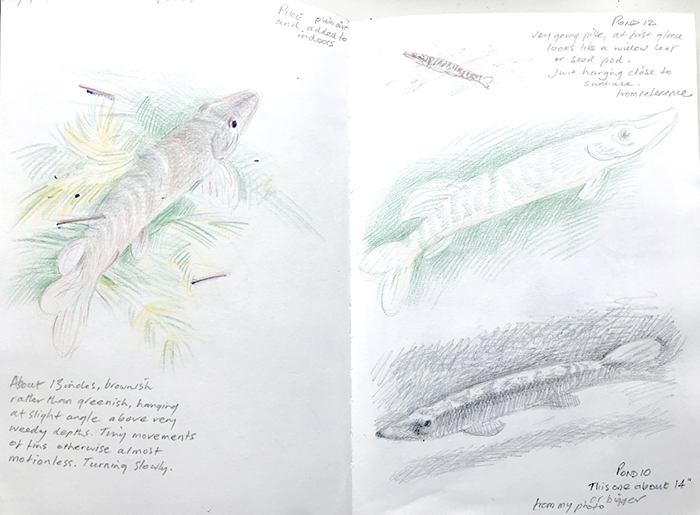 PIKE plein air
and added to
indoors
About 13 inches, brownish
rather than greenish, hanging
at slight angle above very
weedy depths. Tiny movements
of fins otherwise almost
motionless. Turning slowly.
POND 12
very young pike, at first glance
looks like a willow leaf
or seed pod.
Just hanging close to
surface.
from reference
POND 10
This one about 14"
or bigger
from my photo